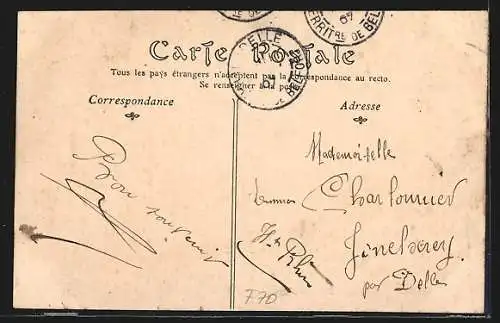 07
TERRITRE DE BEL
DELLE
07
Carte Postale
Tous les pays étrangers n'acceptent pas la correspondance au recto.
Se renseigner à la pos
Correspondance
Adresse
Bon souvenir
Mademoiselle
Charbonnier
par Delle
Ht Rhin
F70